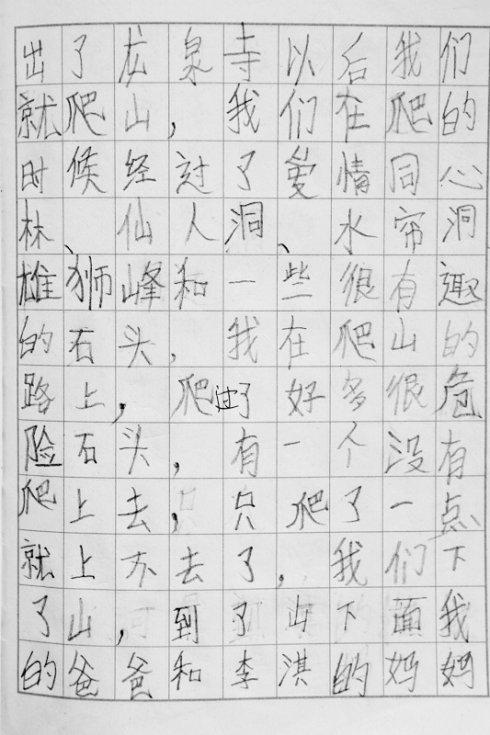 出了龙泉寺以后我们
就爬山，我们在爬的
时候经过了爱情同心
林、仙人洞、水帘洞
雄狮峰和一些很有趣
的石头，我在爬山的
路上，爬过了好多很危
险石头，有一个没有
爬上去，只爬了一点
就上不去了，我们下
了山，到了山下面我
的爸爸和李淇的妈妈